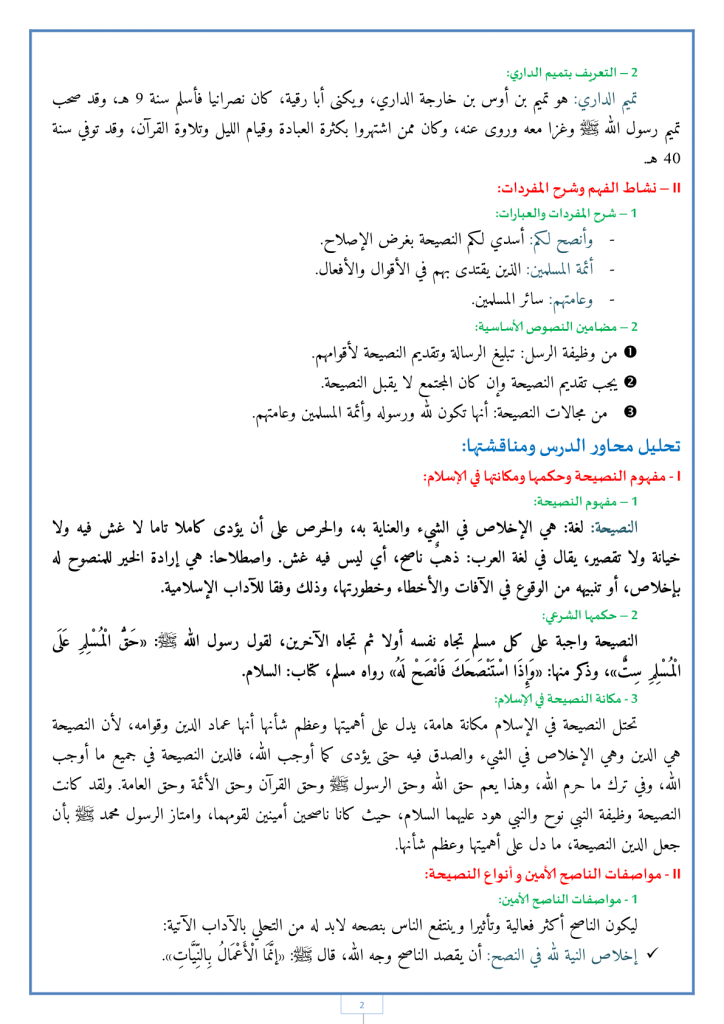 2 – التعريف بتميم الداري:
تميم الداري: هو تميم بن أوس بن خارجة الداري، ويكنى أبا رقية، كان نصرانيا فأسلم سنة 9 هـ، وقد صحب
تميم رسول الله ﷺ وغزا معه وروى عنه، وكان ممن اشتهروا بكثرة العبادة وقيام الليل وتلاوة القرآن، وقد توفي سنة
40 هـ.
II – نشاط الفهم وشرح المفردات:
1 – شرح المفردات والعبارات:
- وأنصح لكم: أسدي لكم النصيحة بغرض الإصلاح.
- أئمة المسلمين: الذين يقتدى بهم في الأقوال والأفعال.
- وعامتهم: سائر المسلمين.
2 – مضامين النصوص الأساسية:
❶ من وظيفة الرسل: تبليغ الرسالة وتقديم النصيحة لأقوامهم.
❷ يجب تقديم النصيحة وإن كان المجتمع لا يقبل النصيحة.
❸ من مجالات النصيحة: أنها تكون لله ورسوله وأئمة المسلمين وعامتهم.
تحليل محاور الدرس ومناقشتها:
I - مفهوم النصيحة وحكمها ومكانتها في الإسلام:
1 – مفهوم النصيحة:
النصيحة: لغة: هي الإخلاص في الشيء والعناية به، والحرص على أن يؤدى كاملا تاما لا غش فيه ولا
خيانة ولا تقصير، يقال في لغة العرب: ذهبٌ ناصح، أي ليس فيه غش. واصطلاحا: هي إرادة الخير للمنصوح له
بإخلاص، أو تنبيهه من الوقوع في الآفات والأخطاء وخطورتها، وذلك وفقا للآداب الإسلامية.
2 – حكمها الشرعي:
النصيحة واجبة على كل مسلم تجاه نفسه أولا ثم تجاه الآخرين، لقول رسول الله ﷺ: «حَقُّ الْمُسْلِمِ عَلَى
الْمُسْلِمِ سِتٌّ»، وذكر منها: «وَإِذَا اسْتَنْصَحَكَ فَانْصَحْ لَهُ» رواه مسلم، كتاب: السلام.
3 - مكانة النصيحة في الإسلام:
تحتل النصيحة في الإسلام مكانة هامة، يدل على أهميتها وعظم شأنها أنها عماد الدين وقوامه، لأن النصيحة
هي الدين وهي الإخلاص في الشيء والصدق فيه حتى يؤدى كما أوجب الله، فالدين النصيحة في جميع ما أوجب
الله، وفي ترك ما حرم الله، وهذا يعم حق الله وحق الرسول ﷺ وحق القرآن وحق الأئمة وحق العامة. ولقد كانت
النصيحة وظيفة النبي نوح والنبي هود عليهما السلام، حيث كانا ناصحين أمينين لقومهما، وامتاز الرسول محمد ﷺ بأن
جعل الدين النصيحة، ما دل على أهميتها وعظم شأنها.
II - مواصفات الناصح الأمين وأنواع النصيحة:
1 - مواصفات الناصح الأمين:
ليكون الناصح أكثر فعالية وتأثيرا وينتفع الناس بنصحه لابد له من التحلي بالآداب الآتية:
✓ إخلاص النية لله في النصح: أن يقصد الناصح وجه الله، قال ﷺ: «إِنَّمَا الْأَعْمَالُ بِالنِّيَّاتِ».
2